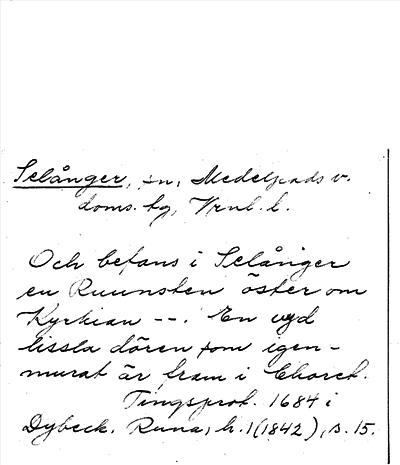 Selånger, sn, Medelpads v.
doms. hg, Vrnl. l.
Och befans i Selånger
en Ruunsten öster om
Kyrkian --. En wyd
lissla dören som igen-
murat är fram i Choret.
Tingsprot. 1684 i
Dybeck. Runa, h. 1 (1842), s. 15.